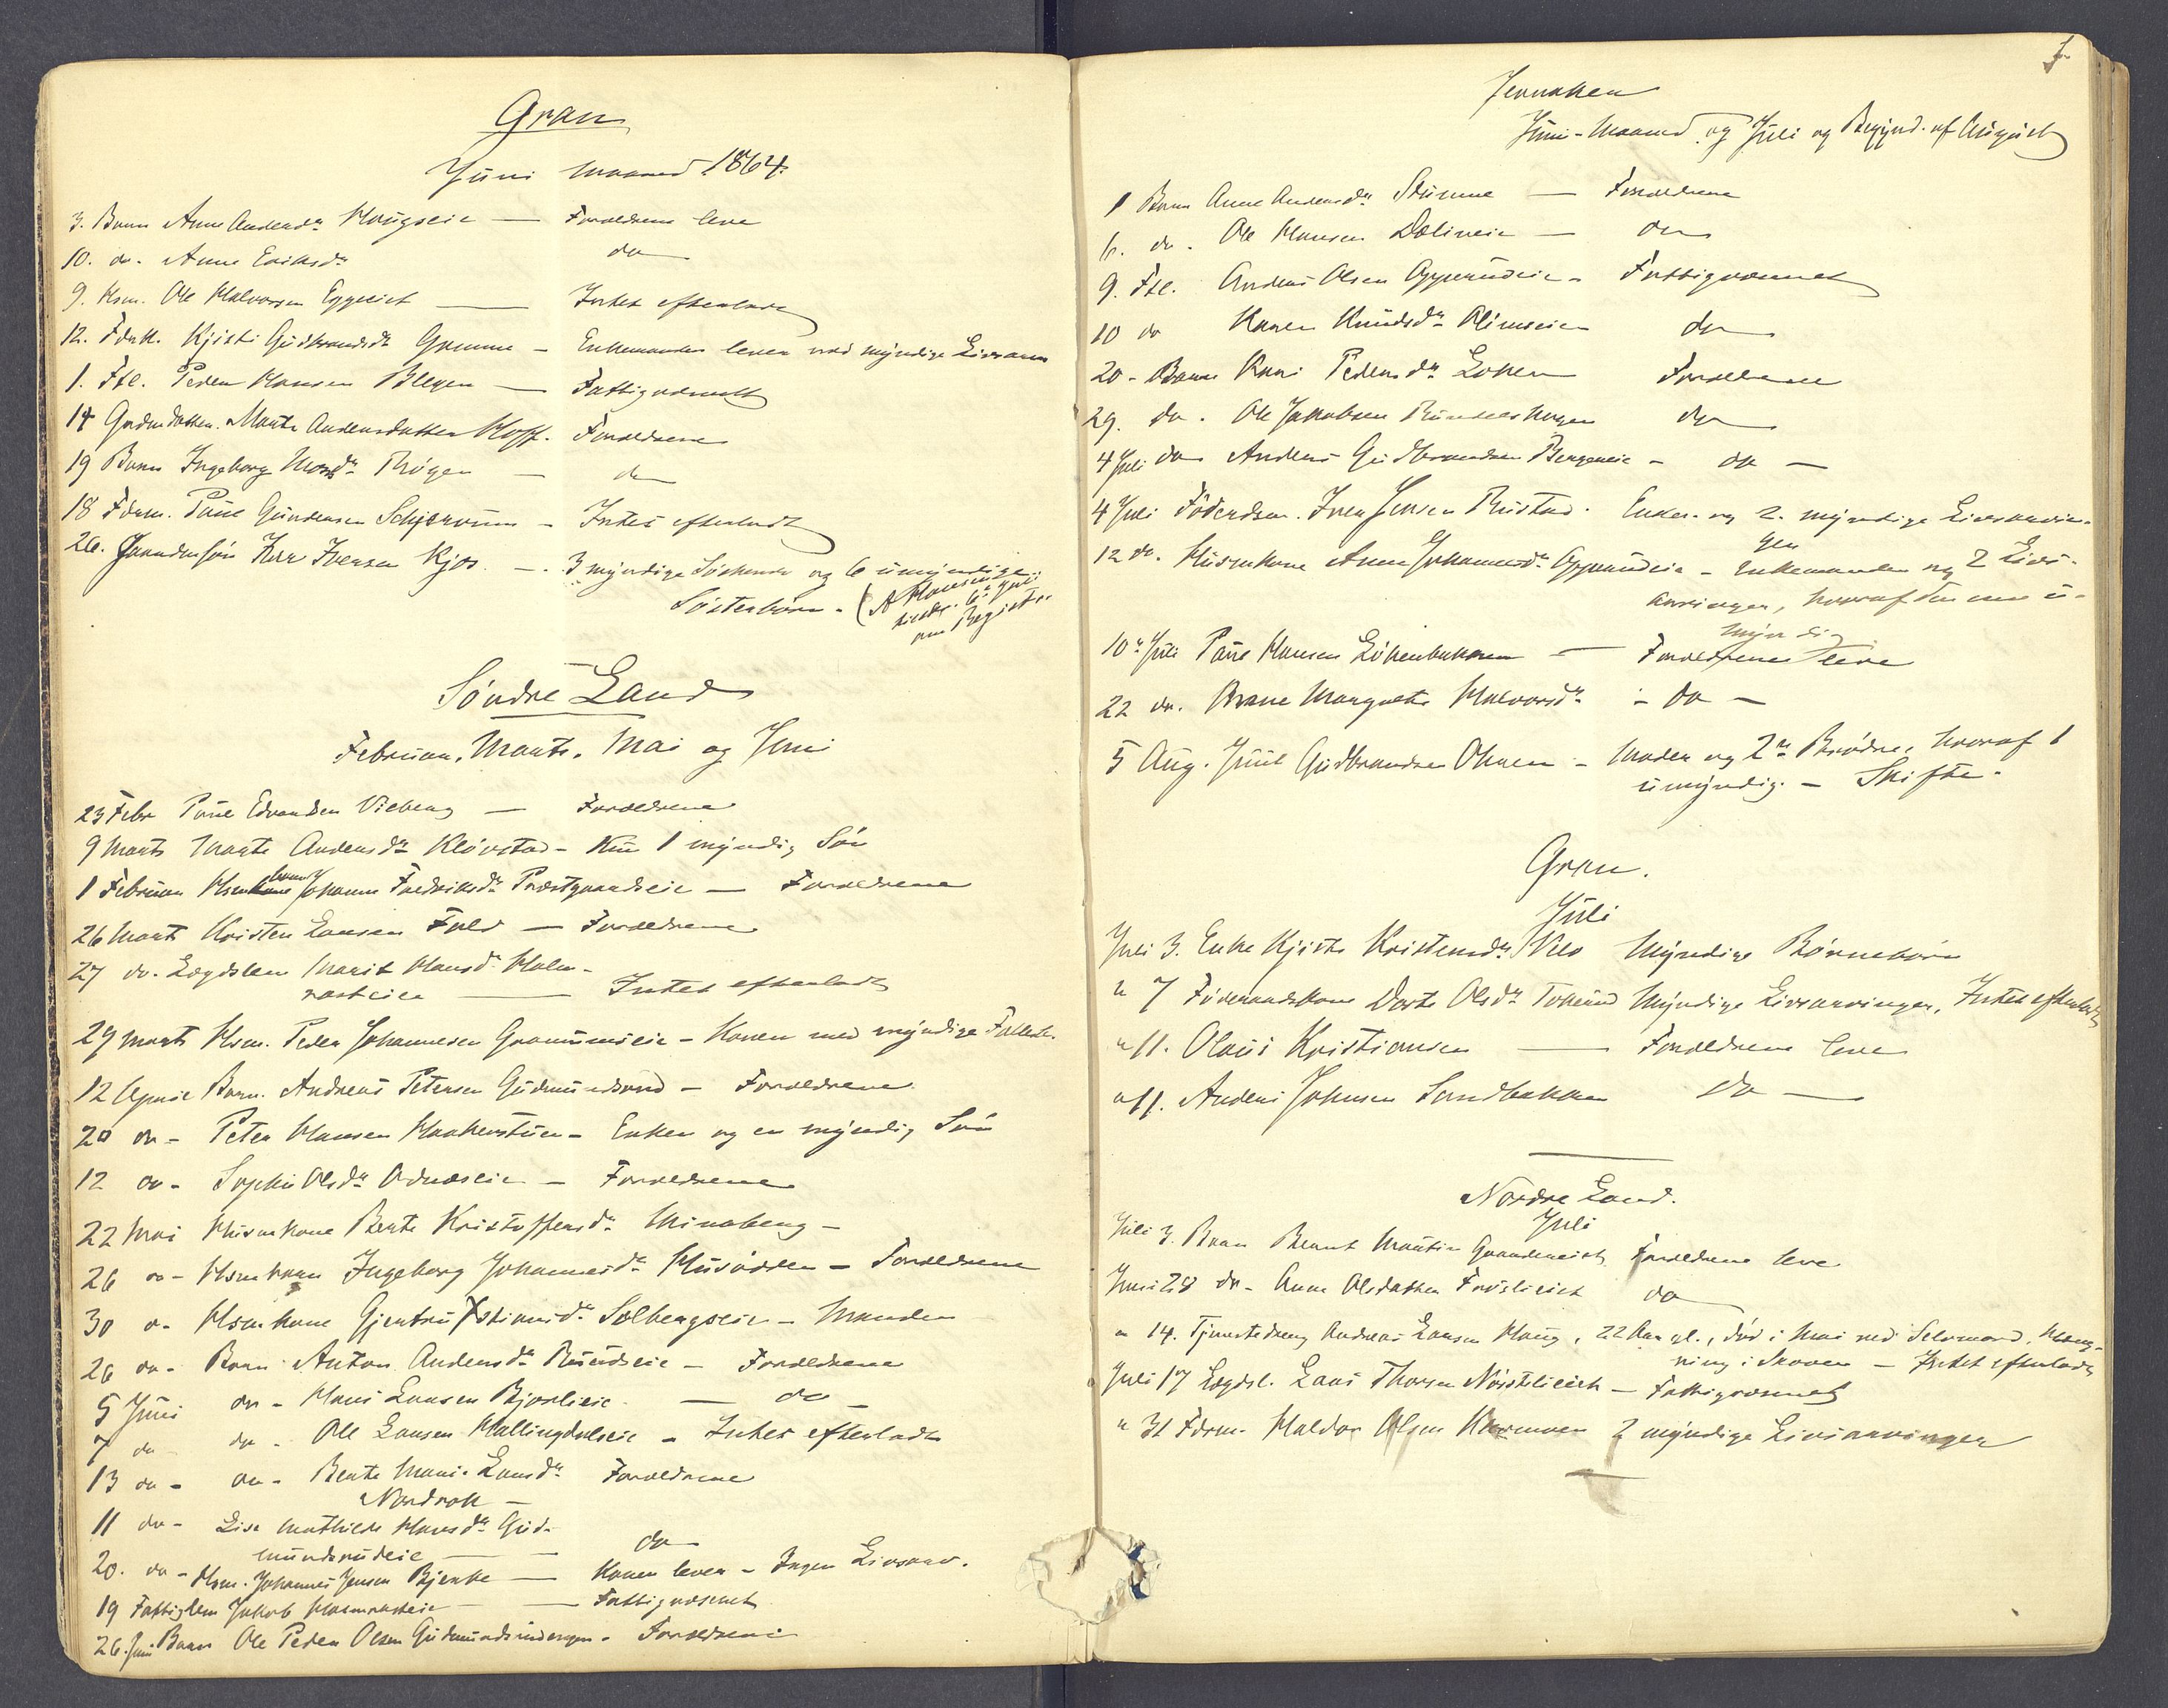 Gran
Juni Maaned 1864.
3. Barn Anne Andersdr Haugseie — Forældrene leve
10. do. Anne Eriksdr do
9. Hsm. Ole Halvorsen Eggeeiet — Intet efterladt
12. Fdrk. Kjisti Gudbrandsdr Grinne — Enkemanden lever med myndige Livsarv
1. Ftl. Peder Hansen Blegen — Fattigvæsenet
14 Gaardmdatter. Marte Andersdatter Hoff. Forældrene
19 Barn Ingeborg Monsdr Røgen — do
18 Fdrm. Paul Gundersen Schjervum — Intet efterladt
26. Gaardmsøn Iver Iversen Kjos. — 3 myndige Søskende og 6 umyndige
Søsterbørn — (A Hansen
6te Juli
Registr.
Søndre Land
Februar, Marts, Mai og Juni
23 Febr Paul Edvardsen Vieberg — Forældrene
9 Marts Marte Andersdr Kløvstad — Kun 1 myndig Søn
1 Februar Hsmbarn Johanne Fredriksdr Præstgaardseie — Forældrene
26 Marts Kristen Larsen Fuld — Forældrene
27 do. Lægdslem Marit Hansdr Holm-
rasteiea — Intet efterladt
29 Marts Hsm. Peder Johannesen Granumseie — Konen med myndige
12 April Barn. Andreas Petersen Gudmundsrud — Forældrene
20 do — Peter Hansen Haakenstuen — Enken og en myndig Søn
12 do — Sophie Olsdr Odnæseie — Forældrene
22 Mai Husmkone Berte Kristoffersdr Skinnberg —
26 do — Hsmbarn Ingeborg Johannesdr Husodden — Forældrene
30 do Hsmkone Gjertru Xstiansdr Solbergseie — Manden
26 do — Barn Anton Andersdr Ruudseie — Forældrene
5 Juni do — Hans Larsen Bjørlieie — do —
7 do do — Ole Larsen Hallingdalseie — Intet efterladt
13 do — do — Berte Marie Larsdr Forældrene
Nordrak —
11 do — Lise Mathilde Hansdr Gud-
mundsrudeie — do
20. do — Hsm. Johannes Jensen Bjerke — Konen lever — Ingen Livsarv.
19 Fattiglem Jakob Holmrasteie — Fattigvæsenet
26. Juni Barn Ole Peder Olsen Gudmundsrudengen — Forældrene
Jevnaker
Juni-Maaned og Juli og Begynd. af August
1 Barn Anne Andersdr Stumne — Forældrene
6. do. Ole Hansen Dælineie — do
9. Ftl. Anders Olsen Opperudeie — Fattigvæsenet
10 do Karen Knudsdr Olimseie do
20 — Barn Kari Pedersdr Løken Forældrene
29. do. Ole Jakobsen do
4 Juli do Anders Gudbrandsen Bergseie — do —
4 Juli Føderdsm. Iver Jensen Rustad. Enken og 2 myndige Livsarvin-
gen
12 do. Husmkone Anne Johannesdr Opperudeie — Enkemanden og 2 Livs-
arvinger, hvoraf den ene u-
myndig
10de Juli Paul Hansen Løkenbakken — Forældrene leve
22 do. Anne Margrete Halvorsdr — do —
5 Aug. Juul Gudbrandsen — Moder og 2de Brødre, hvoraf 1
umyndig — Skifte.
Gran.
Juli
Juli 3. Enke Kjisti Kristensdr Myndige Børnebørn
" 7 Føderaadskone Dorte Olsdr Myndige Livsarvinger, Intet efterladt
" 11. Olaus Kristiansen — Forældrene leve
" 11. Anders Johnsen Sandbakken do —
Nordre Land.
Juli
Juli 3. Barn Bernt Martin Forældrene leve
Juni 28 do — Anne Olsdatter Frøslieiet do
" 14. Tjenestedreng Andreas Larsen Haug, 22 Aar gl., død i Mai ved Selvmord, Hæng-
ning i Skoven — Intet efterladt
Juli 17 Lægdsl. Lars Thorsen Nøistelieiet — Fattigvæsenet
" 31 Fdrm. Haldor Olsen 2 myndige Livsarvinger